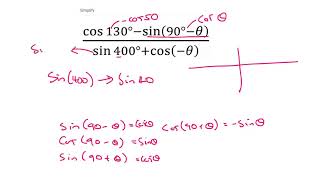 Simplify
-cos50 cos θ
cos 130°−sin(90°−θ)
sin 400°+cos(−θ)
Sin(400) → Sin40
Sin(90-θ)=cosθ Cos(90+θ)=-Sinθ
Cos(90-θ)=Sinθ
Sin(90+θ)=cosθ